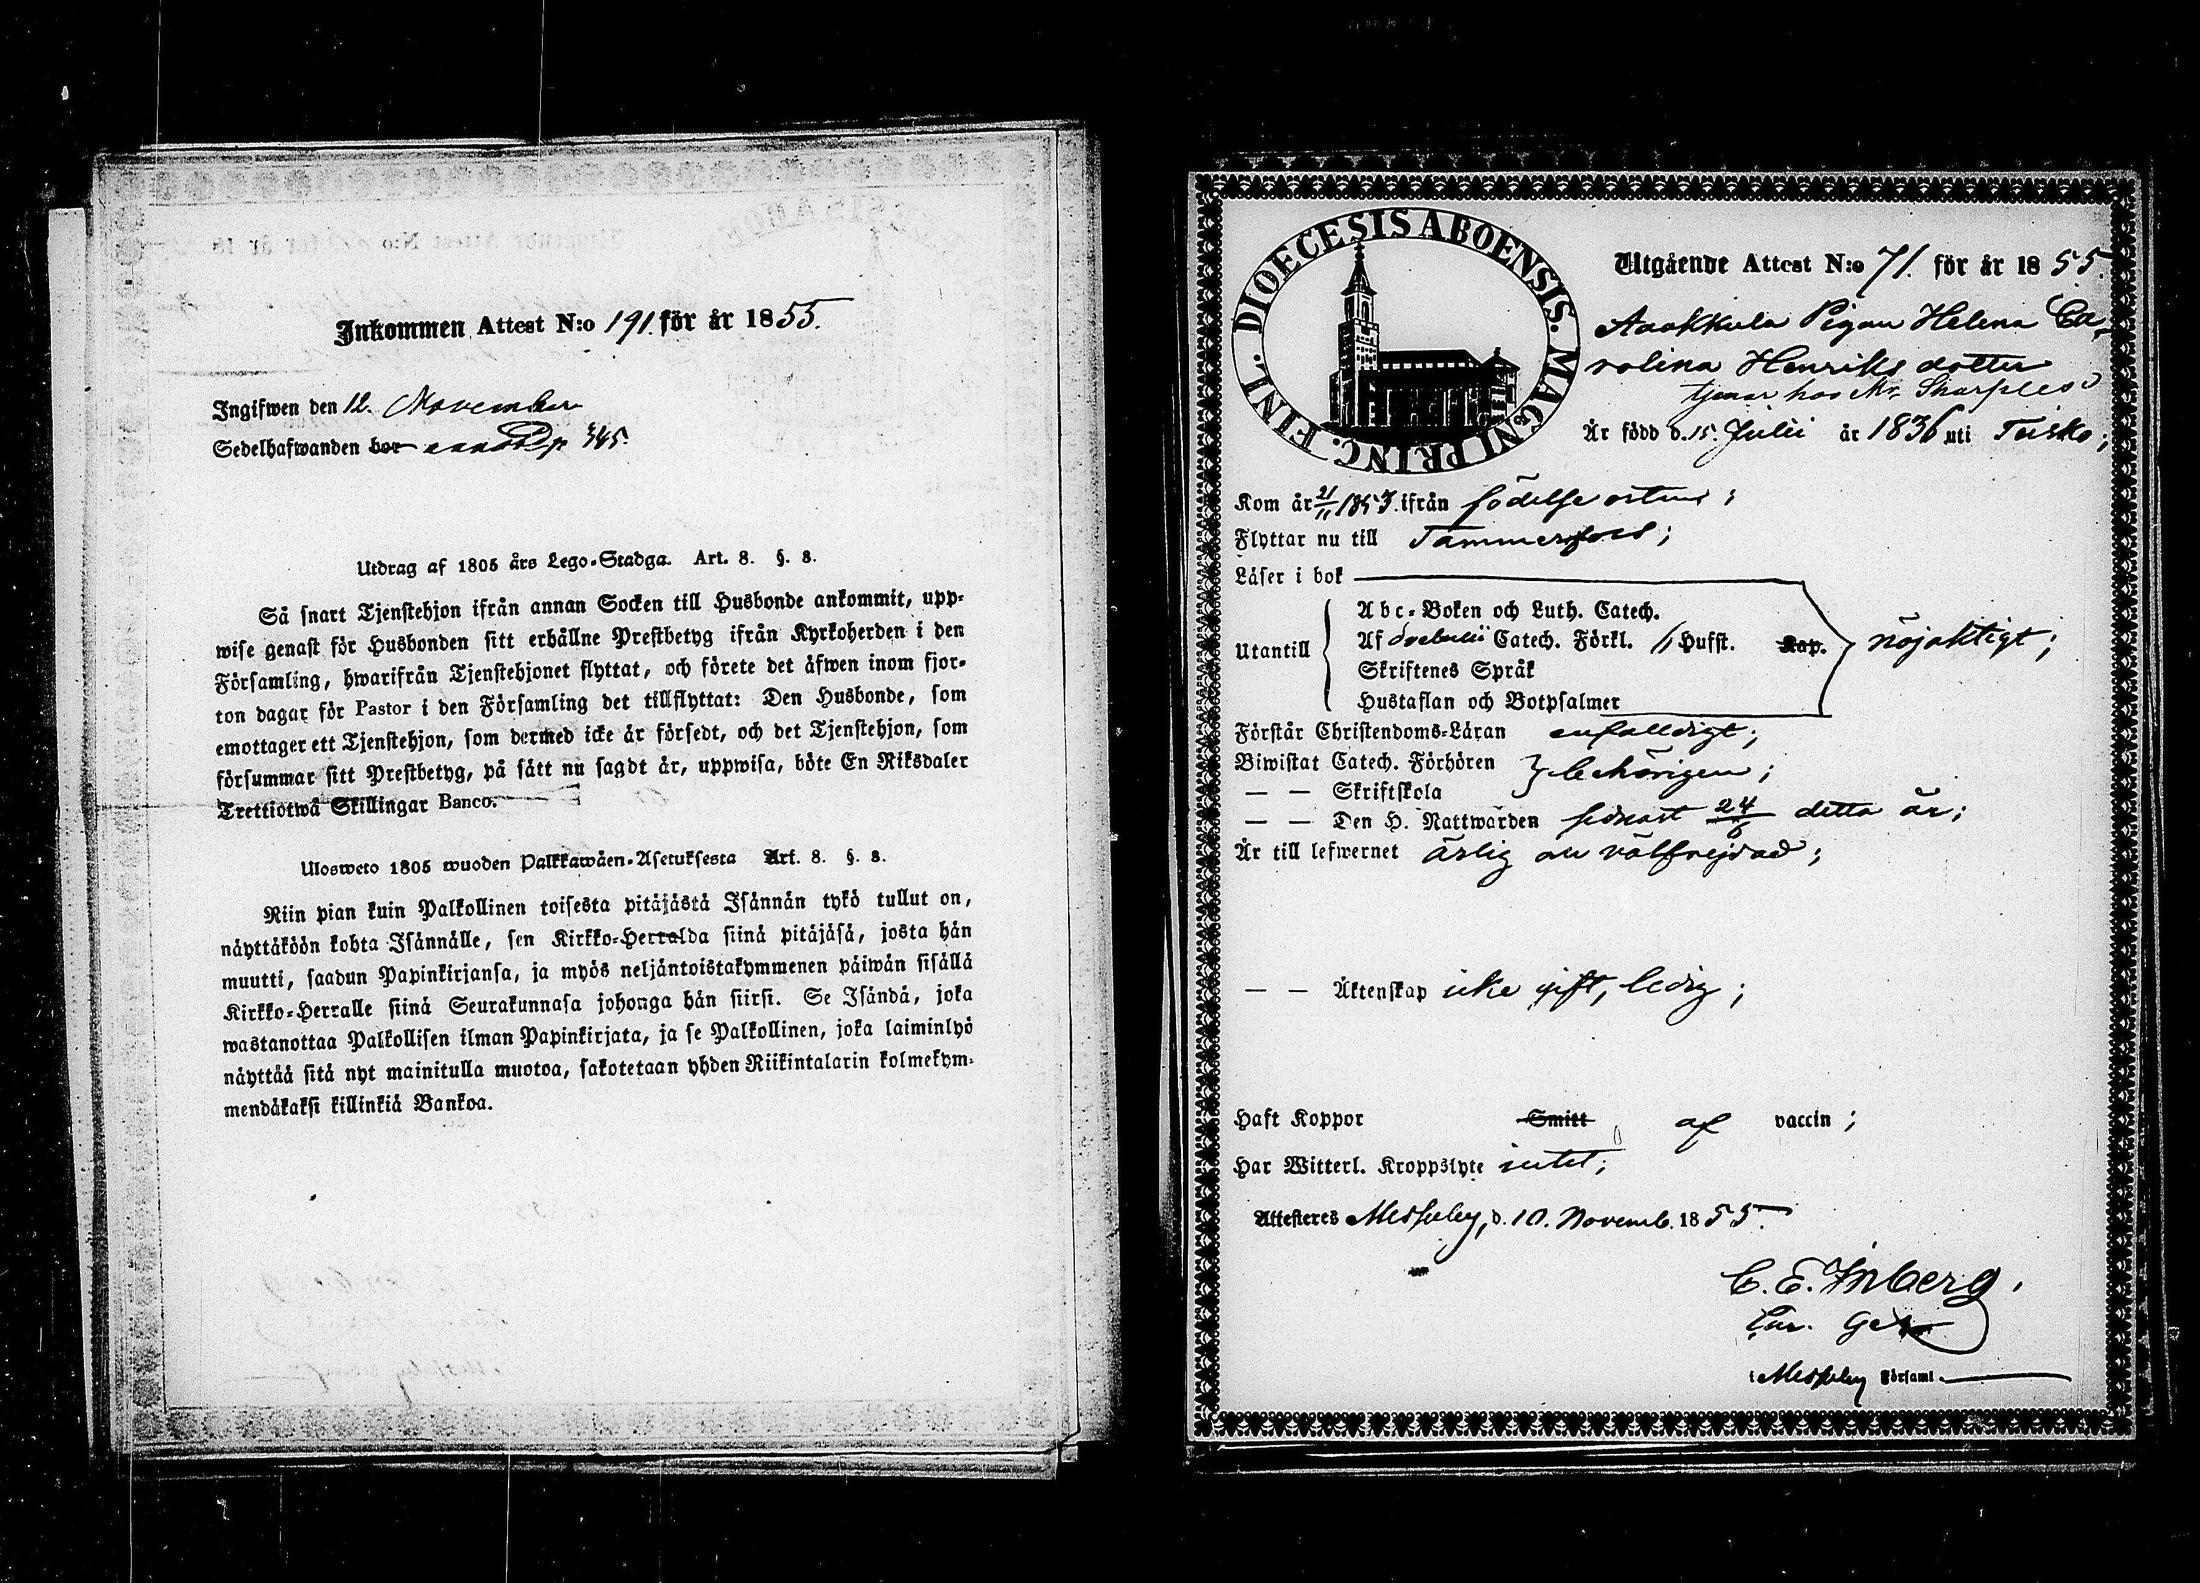 Inkommen Attest N:o 191. för år 1855.
Ingifwen den 12. November
Sedelhafwanden bor 345.
Utdrag af 1805 års Lego-Stadga. Art. 8. §. 8.
Så snart Tjenstehjon ifrån annan Socken till Husbonde ankommit, upp-
wise genast för Husbonden sitt erhållne Prestbetyg ifrån Kyrkoherden i den
Församling, hwarifrån Tjenstehjonet flyttat, och förete det äfwen inom fjor-
ton dagar för Pastor i den Församling det tillflyttat: Den Husbonde, som
emottager ett Tjenstehjon, som dermed icke är försedt, och det Tjenstehjon, som
försummar sitt Prestbetyg, på sätt nu sagdt är, uppwisa, böte En Riksdaler
Trettiotwå Skillingar Banco.
Ulosweto 1805 wuoden Palkkawäen-Asetuksesta Art. 8. §. 8.
Niin pian kuin Palkollinen toisesta pitäjästä Isännän tykö tullut on,
näyttäköön kohta Isännälle, sen Kirkko-Herralda siinä pitäjäsä, josta hän
muutti, saadun Papinkirjansa, ja myös neljäntoistakymmenen päiwän sisällä
Kirkko-Herralle siinä Seurakunnasa johonga hän siirsi. Se Isändä, joka
wastanottaa Palkollisen ilman Papinkirjata, ja se Palkollinen, joka laiminlyö
näyttää sitä nyt mainitulla muotoa, sakotetaan yhden Riikintalarin kolmekym-
mendäkaksi killinkiä Bankoa.
DIOECESIS ABOENSIS. MAGNI PRINC. FINL.
Utgående Attest N:o 71. för år 1855.
Aakkula Pigan Helena Ca-
rolina Henriksdotter
tjenar hos Mr Sharples
Är född d. 15. Julii år 1836 uti Teisko;
Kom år 21/11 1853. ifrån födelseorten;
Flyttar nu till Tammerfors;
Läser i bok
Utantill
Abc-Boken och Luth. Catech.
Af Svebelii Catech. Förkl. // Hufst. Kap.
Skriftenes Språk
Hustaflan och Botpsalmer
nöjaktigt;
Förstår Christendoms-Läran enfalldigt;
Biwistat Catech. Förhören
— — Skriftskola
behörigen;
— — Den H. Nattwarden sednast 24/6 detta år;
Är till lefwernet ärlig och välfrejdad;
— — Äktenskap icke gift, ledig;
Haft Koppor Smitt af vaccin;
Har Witterl. Kroppslyte intet;
Attesteres Messuby, d. 10. Novemb. 1855.
C. E. Inberg.
i Messuby Församl.